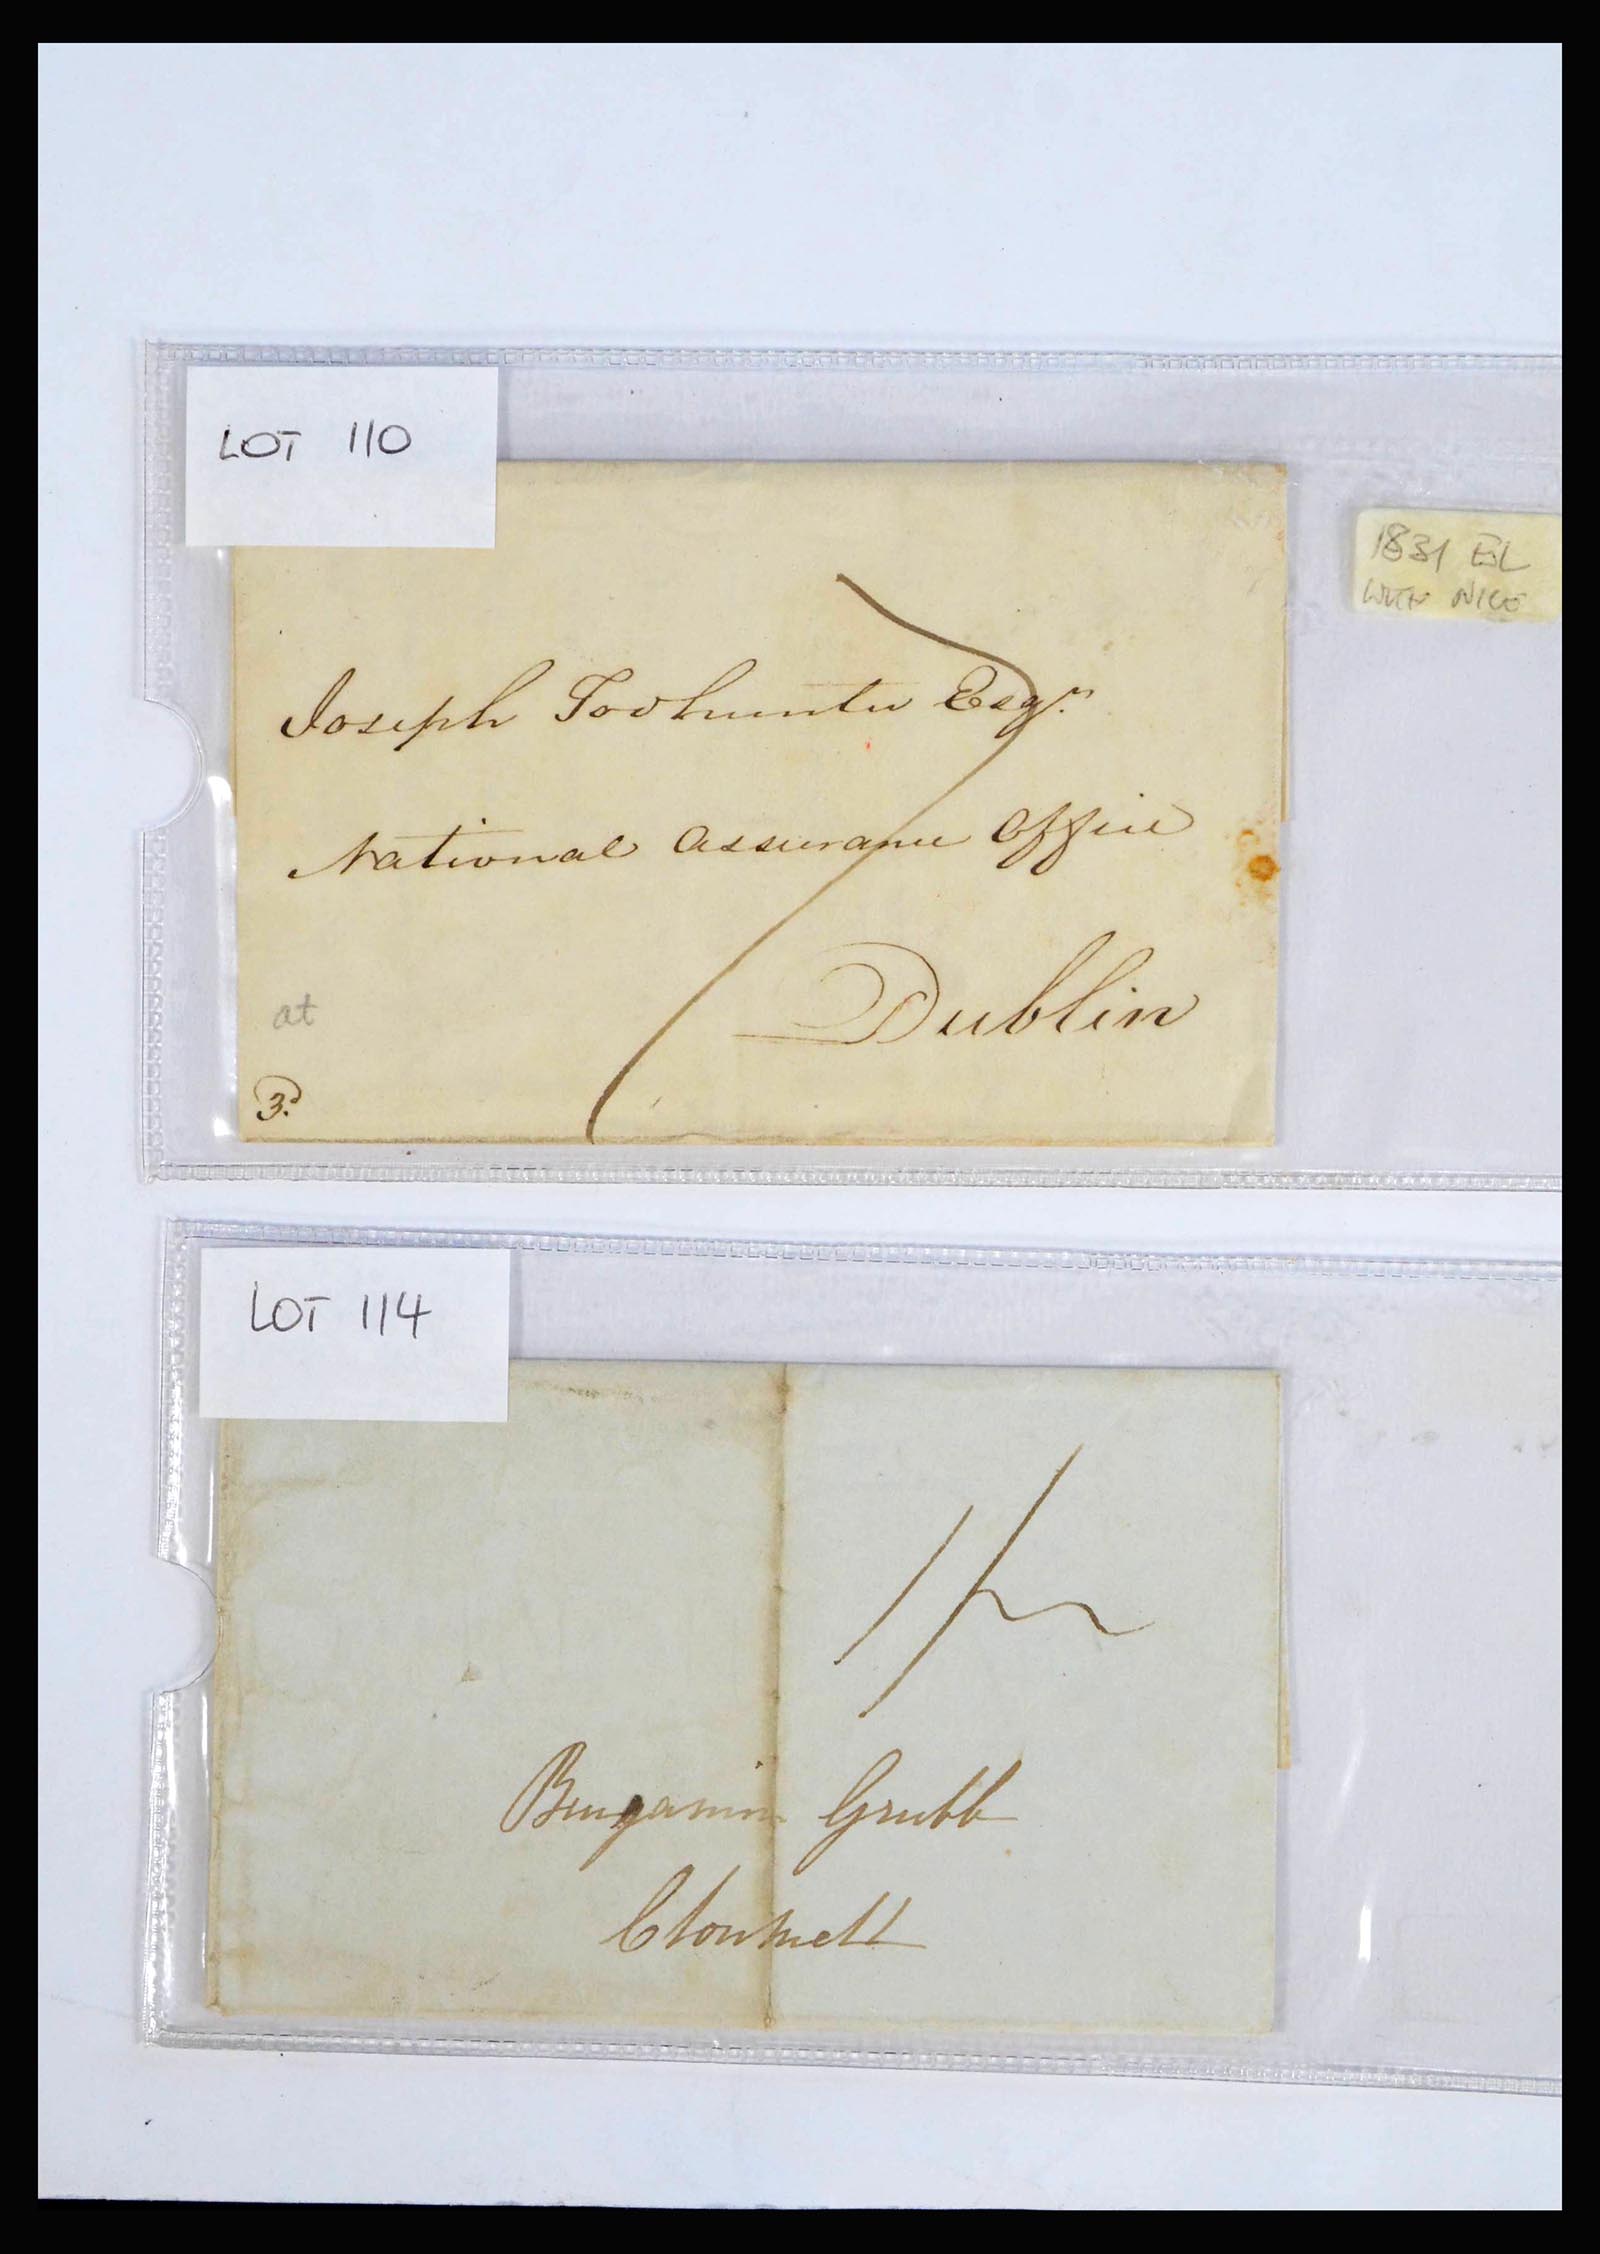 LOT 110
1831 EL
WITH NICE
7
Joseph Todhunter Esqr.
National Assurance Office
Dublin
at
3d
LOT 114
1/
Benjamin Grubb
Clonmell